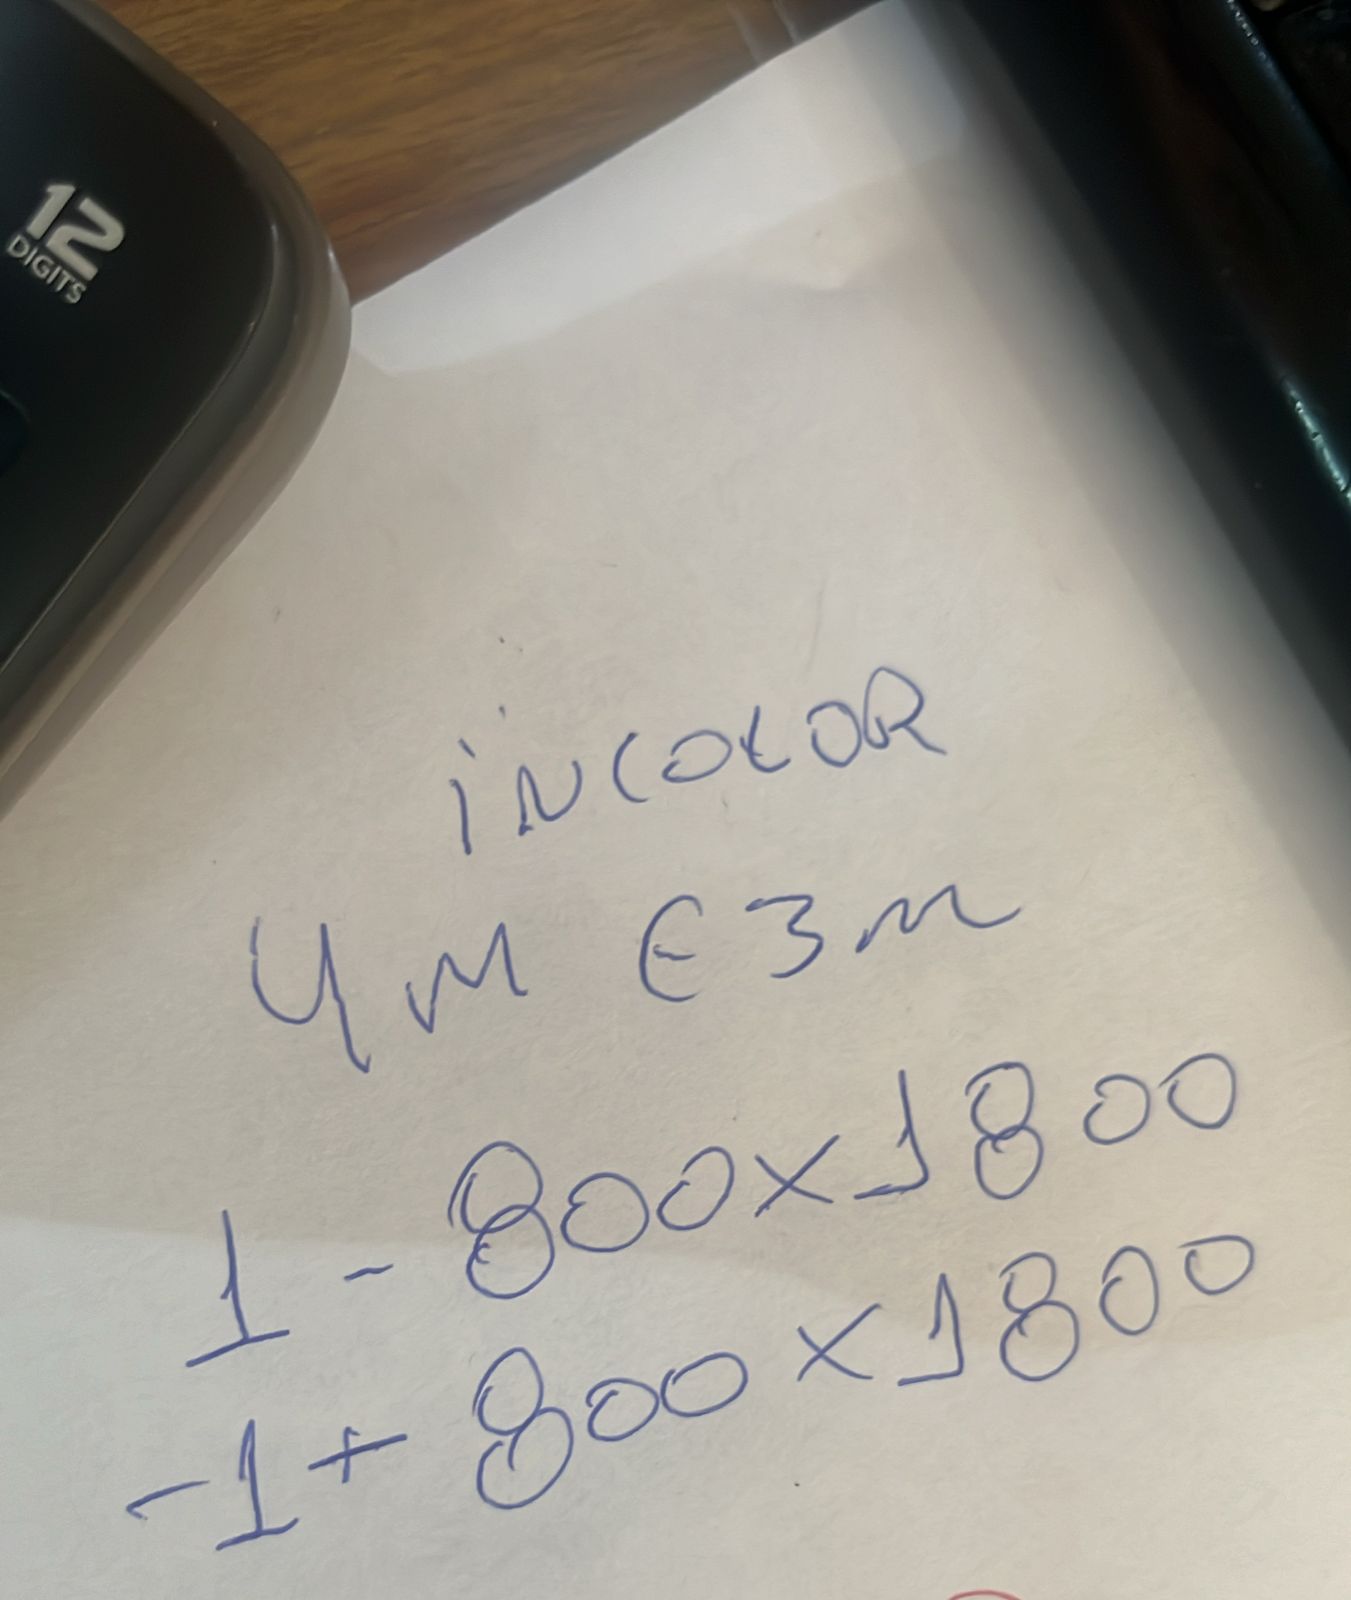 12
DIGITS
iNCOLOR
4M E 3m
1 - 800x1800
-1+ 800x1800